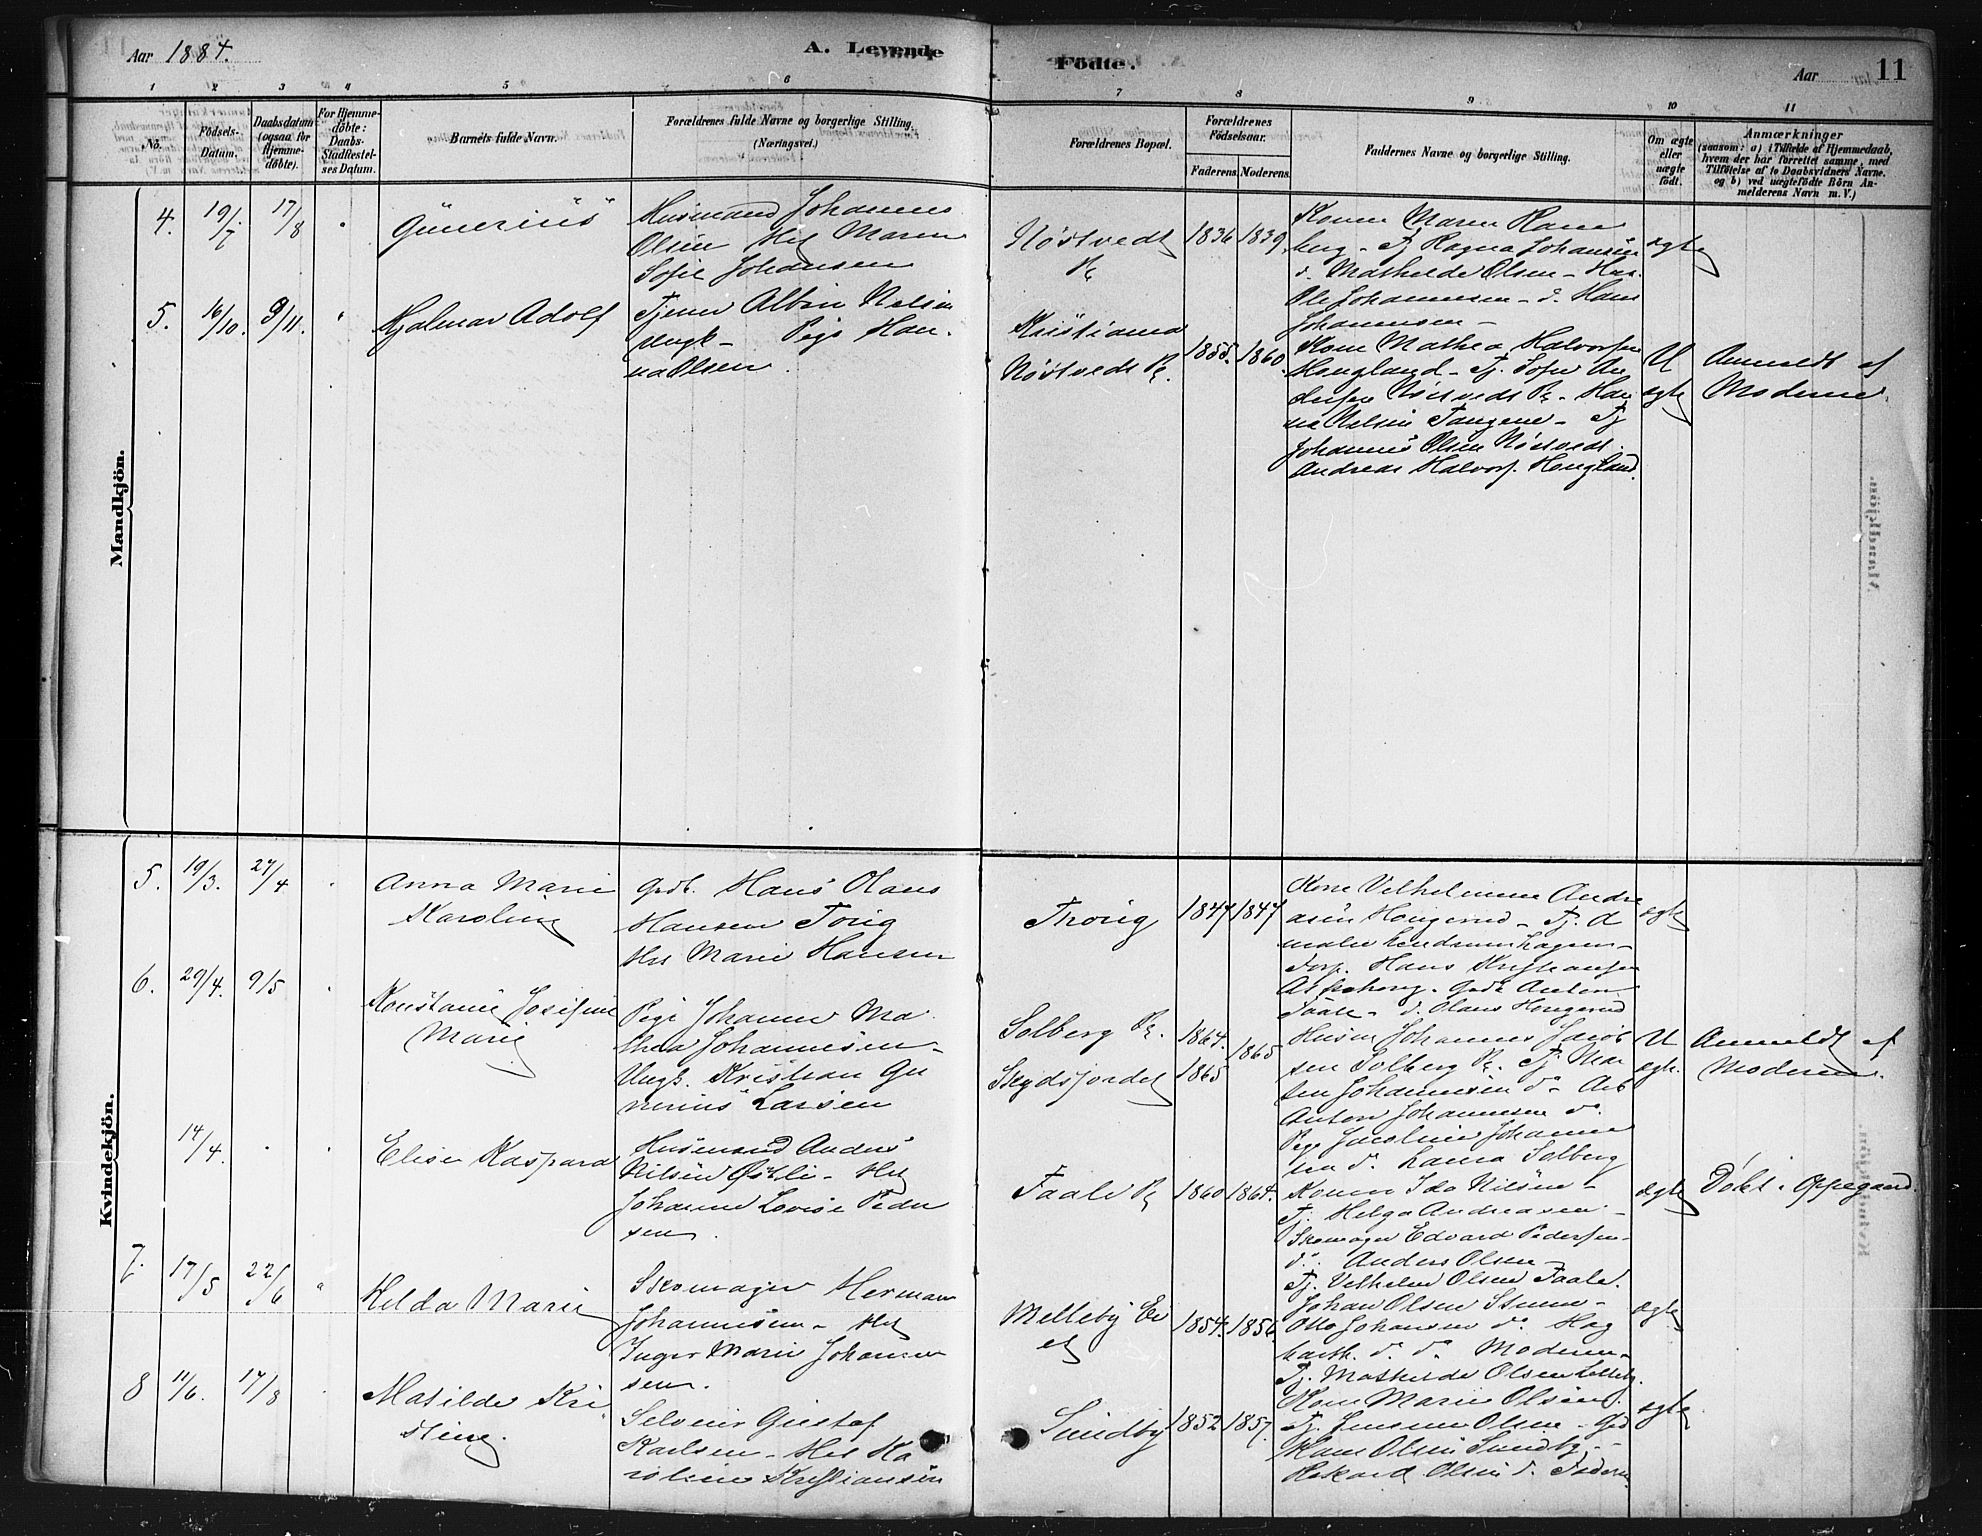 Aar 1884.
A. Levende
Födte.
Aar
11
1 2 3 4 5 6 7 8 9 10 11
No.
Födsels-
Datum.
Daabsdatum
(ogsaa for
Hjemme-
döbte).
For Hjemme-
döbte:
Daabs-
Stadfæstel-
ses Datum.
Barnets fulde Navn.
Forældrenes fulde Navne og borgerlige Stilling.
(Næringsvei.)
Forældrenes Bopæl.
Forældrenes
Födselsaar.
Faderens.
Moderens.
Faddernes Navne og borgerlige Stilling.
Om ægte
eller
uægte
födt.
Anmærkninger
(saasom: a) i Tilfælde af Hjemmedaab,
hvem der har forrettet samme, med
Tilföielse af to Daabsvidners Navne.
og b) ved uægtefödte Börn An-
melderens Navn m. V.)
Mandkjön.
4. 19/7 17/8
Gunerius
Husmand Johannes
Olsen Hst Maren
Sofie Johansen
Nöstvedt
1836 1839
Konen Maren Ram
berg - Tj Ragna Johansen
d. Mathilde Olsen -
Ole Johannesen - d. Hans
Johannesen -
ægte
5. 16/10. 9/11.
Hjalmar Adolf
Tjener Albin Nelsen
Ungk - Pige Han
na Olsen.
Kristiania
Nöstvedt
1855. 1860.
Kone Mathea Halvorsen
Hougland - Tj. Sofie An
dersen Nöstvedt - Han
na Nelsen Tangene - Tj
Johannes Olsen Nöstvedt.
Andreas Halvors. Hougland.
U
ægte
Anmeldt af
Moderne.
Kvindekjön.
5. 19/3. 27/4
Anna Marie
Karoline
Gdb. Hans Olaus
Hansen Torig
Hst Marie Hansen
Thorig
1847 1847
Kone Vilhelmine Andre
asen Hougerud - Tj. A
malie
Hans
Anton
Taale - d. Olaus Hougerud
ægte
6. 29/4. 9/5
Konstanse Josefine
Marie
Pige Johanne Ma
thea Johannesen -
Ungk. Kristian Gu
nerius Larsen
Solberg
Skydsjordet
1864.
1865
1865
Husm Johannes Jacob
sen Solberg Tj. Mar
ten Johannesen d.
Anton Johannesen d.
Pige Josefine Johanne
sen d. Laura Solberg
U
ægte.
Anmeldt af
Moderen.
14/4.
Elise Kaspara
Husmand Anders
Nilsen Østli - Hst
Johanne Lovise Peder
sen.
Taale
1860 1864.
Konen Ida Nilsen -
Tj. Helga Andreasen -
Skomager Edvard Pedersen -
d. Anders Olsen -
Tj. Vilhelm Olsen Taale.
ægte
Döbt i Oppegaard.
7. 17/5 22/6
Hilda Marie
Skomager Herman
Johannesen - Hst
Inger Marie Johannes
sen.
Melleby Ei
et
1854. 1856.
Johan Olsen
Otto Johansen d. Hag
barth d. d. Moderen -
Tj. Mathilde Olsen
ægte
8 11/6. 17/8
Matilde Kri
stine.
Selveier Gustaf
Karlsen - Hst Ka
roline Kristiansen
Sundby
1852 1857.
Kone Marie Olsen.
Tj. Olsen - Gdb
Hans Olsen Sundby -
Olsen d. Faderen
ægte